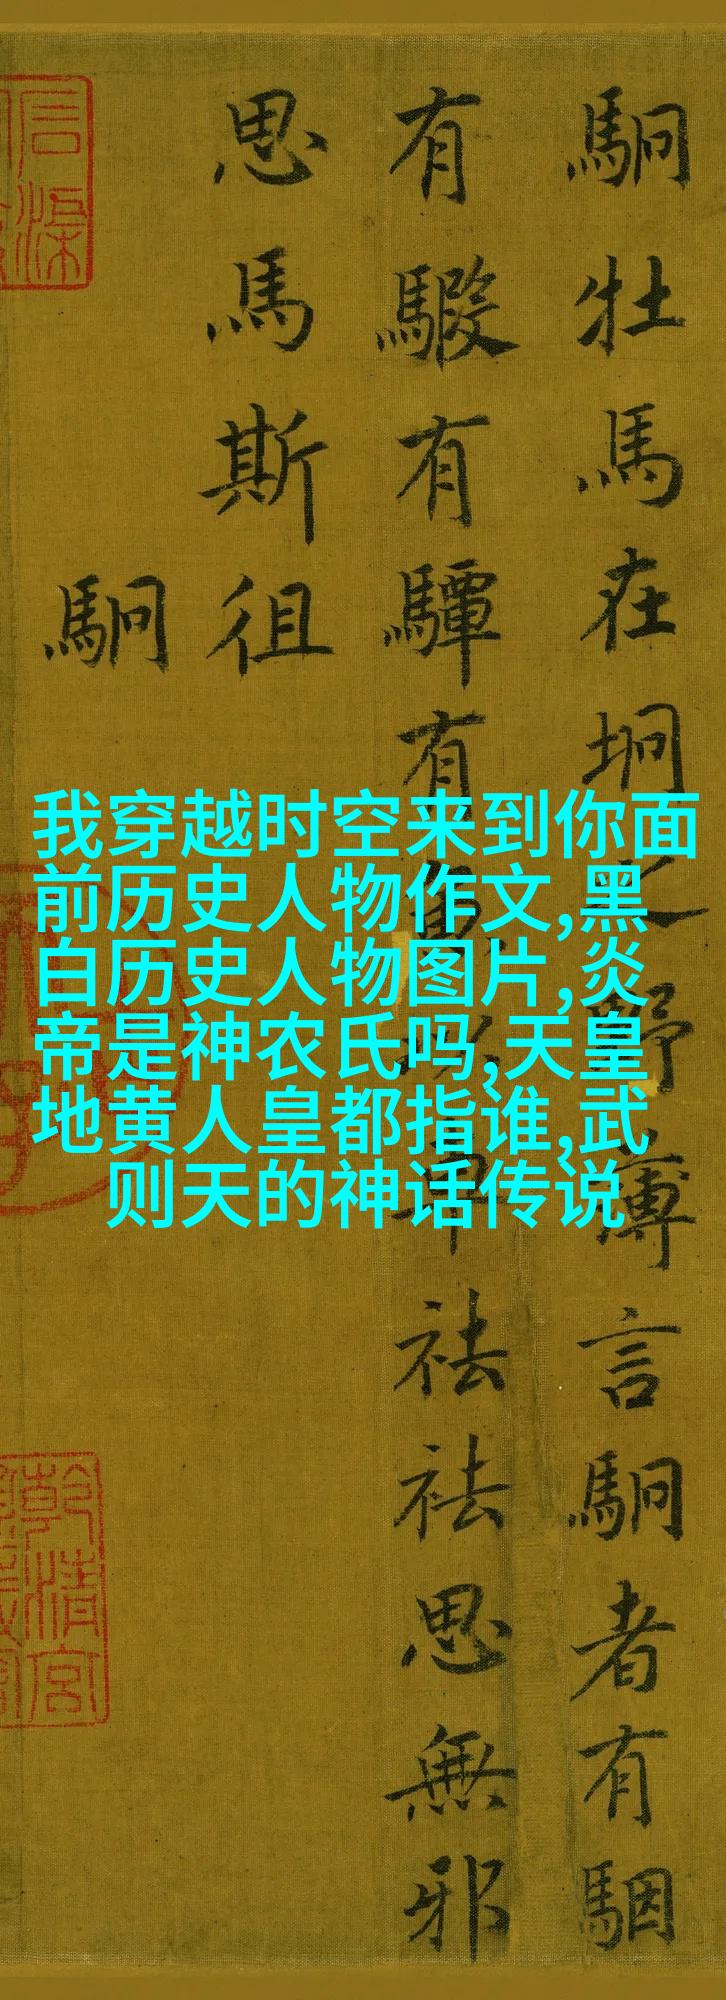 駉牡馬在坰之野薄言駉者有駰
有騢有驔有魚以車祛祛思無邪
思馬斯徂
駉
我穿越时空来到你面
前历史人物作文,黑
白历史人物图片,炎
帝是神农氏吗,天皇
地黄人皇都指谁,武
则天的神话传说
乾清宮